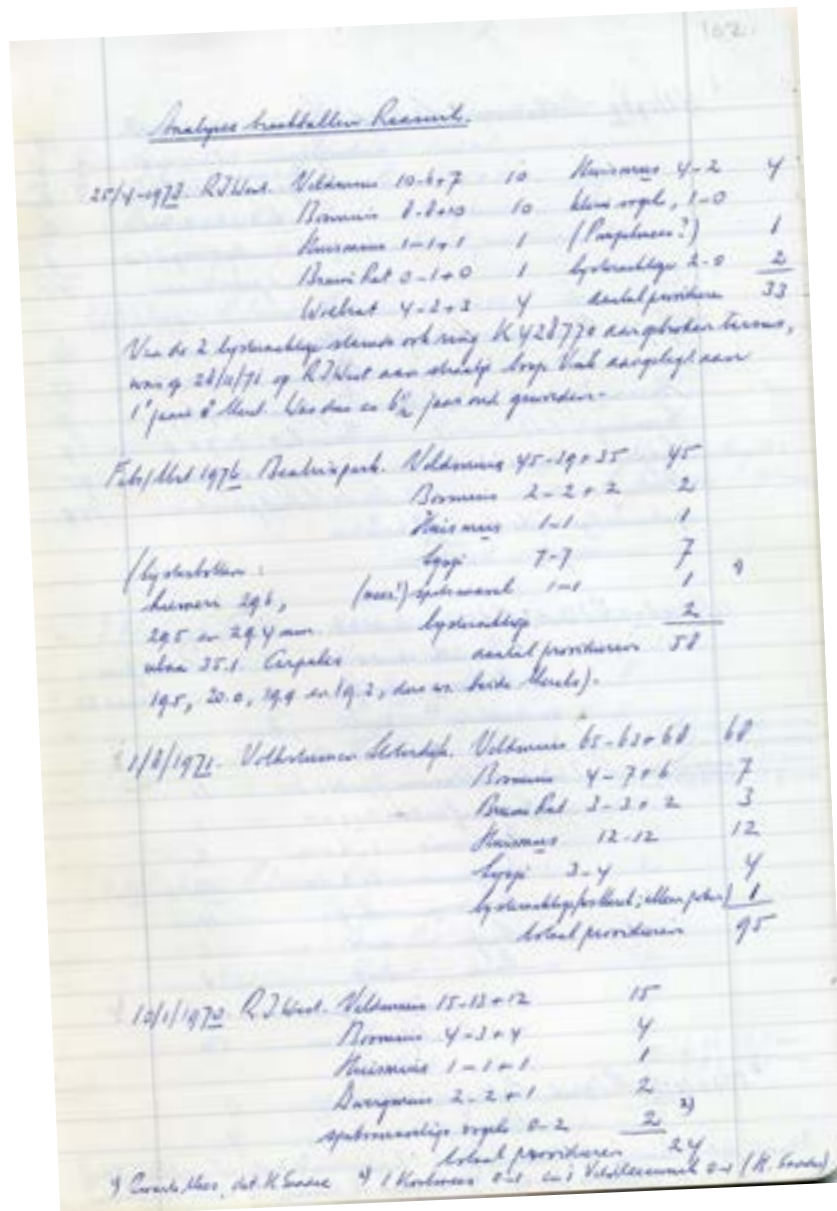 102.
Analyses braakballen Ransuil.
25/4-1973. RIWest. Veldmuis 10-6+7 10 Huismus 4-2 4
Bosmuis 8-8+10 10 kleine vogel, 1-0
Huismuis 1-1+1 1 (Pimpelmees?) 1
Bruine Rat 0-1+0 1 lijsterachtige 2-0 2
Woelrat 4-2+3 4 aantal prooidieren 33
Van de 2 lijsterachtige ook ring K428770
was op 28/11/71 op RIWest aan Vink aangelegd aan
1e jaars ♂ Merel. Was dus jaar oud geworden.
Febr/Mrt 1976. Beatrixpark. Veldmuis 45-39+35 45
Bosmuis 2-2+2 2
Huismus 1-1 1
Sijsje 7-7 7
(mees?) 1-1 1 1)
lijsterachtige 2
aantal prooidieren 58
(lijsterbotten:
humeri 29.6,
29.5 en 29.4 mm.
ulna 35.1. Carpalen
19.5, 20.0, 19.9 en 19.2, dus beide Merels).
1/8/1971. Volkstuinen Sloterdijk. Veldmuis 65-63+68 68
Bosmuis 4-7+6 7
Bruine Rat 3-3+2 3
Huismus 12-12 12
Sijsje 3-4 4
lijsterachtige 1
totaal prooidieren 95
10/1/1970 RIWest. Veldmuis 15-13+12 15
Bosmuis 4-3+4 4
Huismuis 1-1+1 1
Dwergmuis 2-2+1 2
vogels 0-2 2 2)
totaal prooidieren 24
1) Zwarte Mees, det. 2) 1 Koolmees 0-1 en 1 0-1